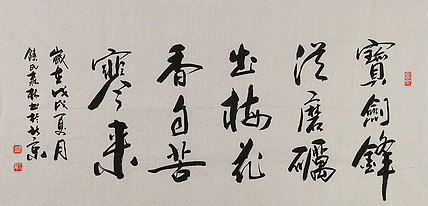 寶劍鋒
從磨礪
出梅花
香自苦
寒来
歲在戊戌夏月
書於北京